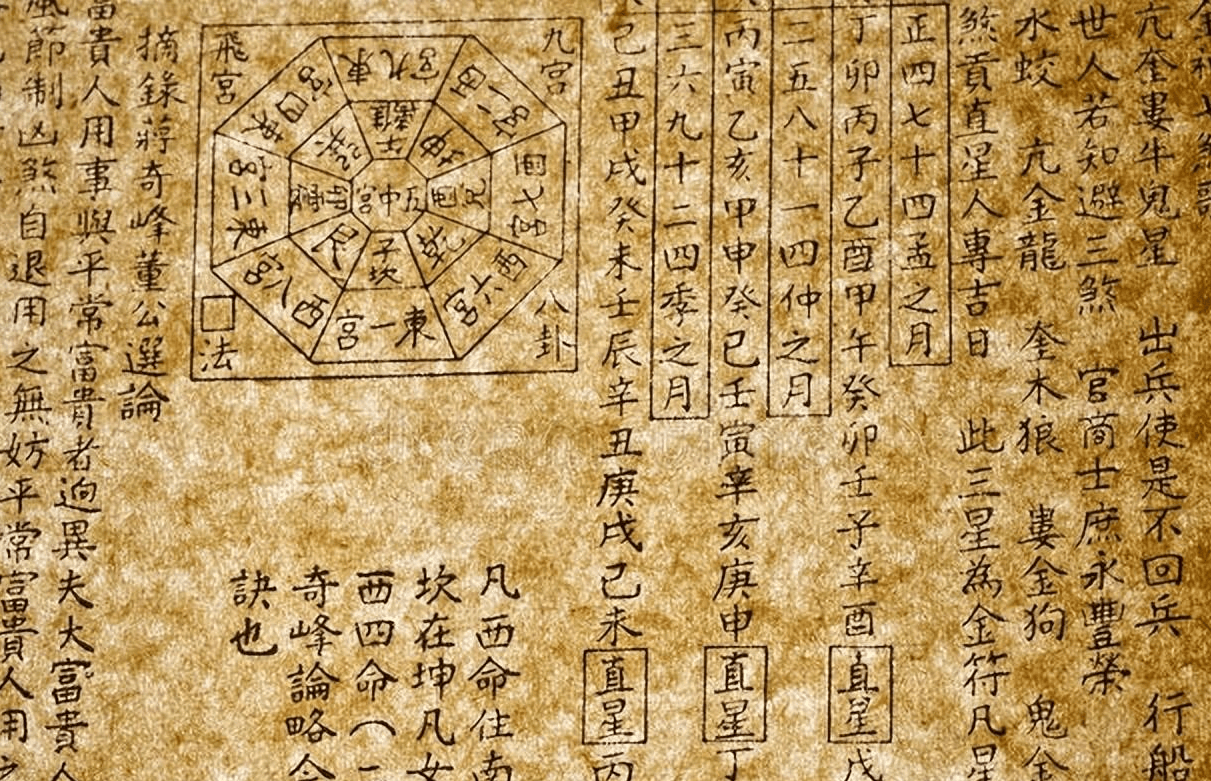 亢奎婁牛鬼星 出兵使是不回兵 行船
世人若知避三煞 官商士庶永豐榮
水蛟 亢金龍 奎木狼 婁金狗 鬼金
煞貢直星人專吉日 此三星為金符凡星
正四七十四孟之月
丁卯丙子乙酉甲午癸卯壬子辛酉 直星 戊
二五八十一四仲之月
丙寅乙亥甲申癸巳壬寅辛亥庚申 直星 丁
三六九十二四季之月
己丑甲戌癸未壬辰辛丑庚戌己未 直星 丙
九宮
八卦
飛宮
□法
東九宮
七宮
西六宮
東一宮
西八宮
東三宮
乾
子坎
五中宮
凡西命住南
坎在坤凡女
西四命（一
奇峰論略令
訣也
摘錄蔣奇峰董公選論
富貴人用事與平常富貴者迥異夫大富貴人
風節制凶煞自退用之無妨平常富貴人用之